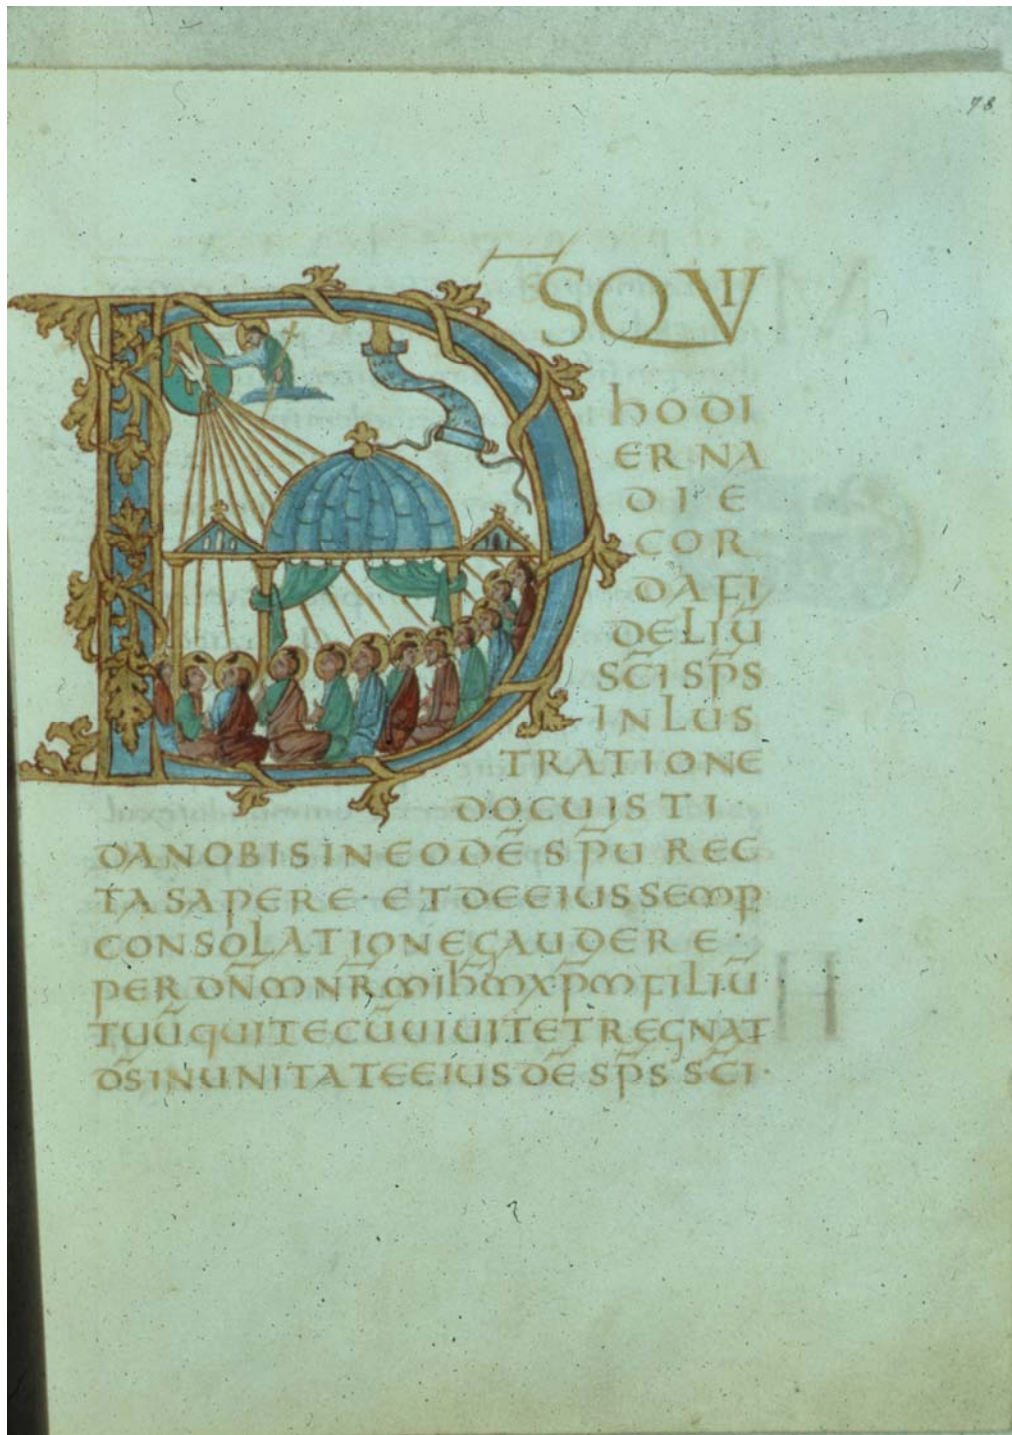 78
D̅S QVI
hODI
ERNA
DIE
COR
DA FI
DELIU̅
SC̅I SP̅S
INLUS
TRATIONE
DOCUISTI
DANOBISINEODE̅ SP̅U REC
TASAPERE· ETDEEIUSSEMP̲
CONSOLATIONEGAUDERE·
PER DN̅M NR̅M IH̅M XP̅M FILIU̅
TUU̅ QUITECU̅UIUITETREGNAT
D̅S INUNITATEEIUSDE̅ SP̅S SC̅I·